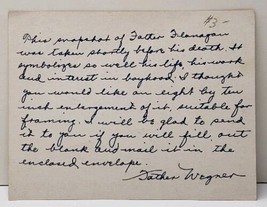 $3-
This snapshot of Father Flanagan
was taken shortly before his death. It
symbolizes so well his life, his work
and interest in boyhood. I thought
you would like an eight by ten
inch enlargement of it, suitable for
framing. I will be glad to send
it to you if you will fill out
the blank and mail it in the
enclosed envelope.
Father Wegner